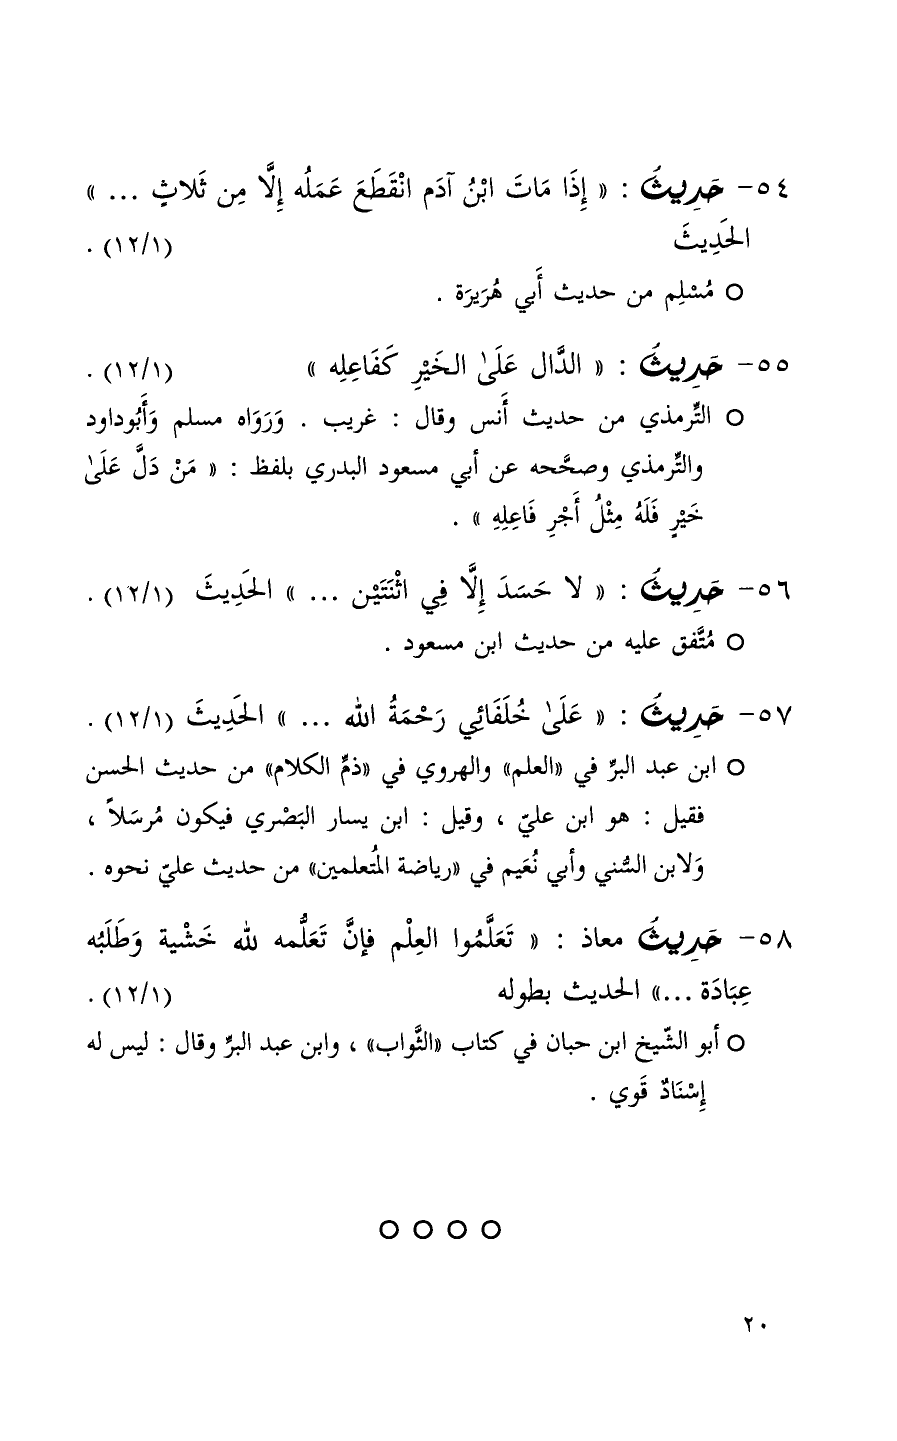 ٥٤- حَدِيثُ : « إِذَا مَاتَ ابْنُ آدَم انْقَطَعَ عَمَلُه إِلَّا مِن ثَلاثٍ ... »
الحَدِيثَ (١٢/١) .
○ مُسْلِم من حديث أَبي هُرَيرَة .
٥٥- حَدِيثُ : « الدَّال عَلَىٰ الخَيْرِ كَفَاعِلِه » (١٢/١) .
○ التِّرمذي من حديث أَنس وقال : غريب . وَرَوَاه مسلم وَأَبُوداود
والتِّرمذي وصحَّحه عن أبي مسعود البدري بلفظ : « مَنْ دَلَّ عَلَىٰ
خَيْرٍ فَلَهُ مِثْلُ أَجْرِ فَاعِلِهِ » .
٥٦- حَدِيثُ : « لا حَسَدَ إِلَّا فِي اثْنَتَيْن ... » الحَدِيثَ (١٢/١) .
○ مُتَّفق عليه من حديث ابن مسعود .
٥٧- حَدِيثُ : « عَلَىٰ خُلَفَائِي رَحْمَةُ الله ... » الحَدِيثَ (١٢/١) .
○ ابن عبد البرِّ في «العلم» والهروي في «ذمِّ الكلام» من حديث الحسن
فقيل : هو ابن عليّ ، وقيل : ابن يسار البَصْري فيكون مُرسَلاً ،
وَلابن السُّني وأبي نُعَيم في «رياضة المُتعلمين» من حديث عليّ نحوه .
٥٨- حَدِيثُ معاذ : « تَعَلَّمُوا العِلْم فإِنَّ تَعَلُّمه لله خَشْية وَطَلَبُه
عِبَادَة ...» الحديث بطوله (١٢/١) .
○ أبو الشّيخ ابن حبان في كتاب «الثَّواب» ، وابن عبد البرِّ وقال : ليس له
إِسْنَادٌ قَوي .
○ ○ ○ ○
٢٠